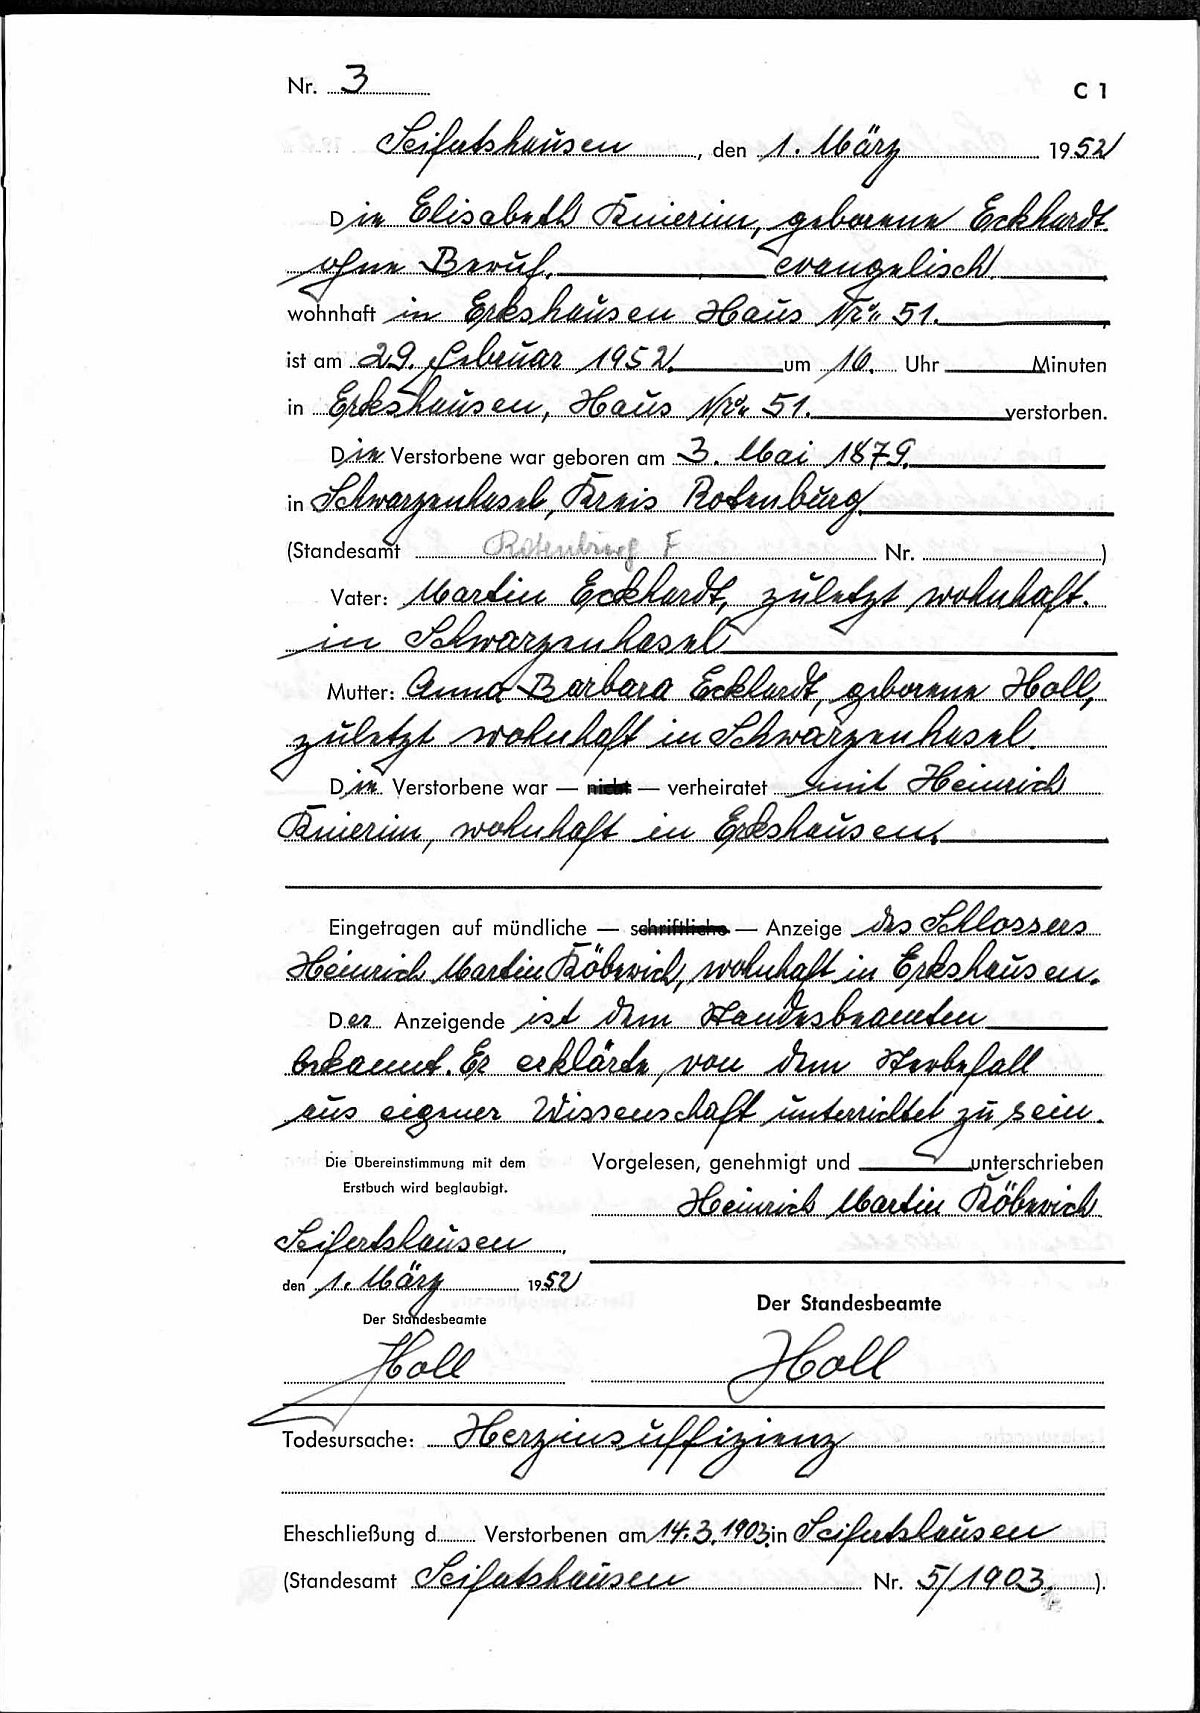 Nr. 3 C 1
Seifertshausen, den 1. März 1952
Die Elisabeth Knierim, geborene Eckhardt
ohne Beruf, evangelisch
wohnhaft in Erkshausen Haus Nr. 51.
ist am 29. Februar 1952 um 16. Uhr Minuten
in Erkshausen, Haus Nr. 51. verstorben.
Die Verstorbene war geboren am 3. Mai 1879.
in Schwarzenhasel, Kreis Rotenburg
(Standesamt Rotenburg F Nr. )
Vater: Martin Eckhardt, zuletzt wohnhaft.
in Schwarzenhasel
Mutter: Anna Barbara Eckhardt, geborene Holl,
zuletzt wohnhaft in Schwarzenhasel.
Die Verstorbene war — nicht — verheiratet mit Heinrich
Knierim, wohnhaft in Erkshausen.
Eingetragen auf mündliche — schriftliche — Anzeige des Schlossers
Heinrich Martin, wohnhaft in Erkshausen.
Der Anzeigende ist dem Standesbeamten
bekannt. Er erklärte, von dem Sterbefall
aus eigener Wissenschaft unterrichtet zu sein.
Die Übereinstimmung mit dem
Erstbuch wird beglaubigt.
Seifertshausen,
den 1. März 1952
Der Standesbeamte
Holl
Vorgelesen, genehmigt und unterschrieben
Heinrich Martin
Der Standesbeamte
Holl
Todesursache: Herzinsuffizienz
Eheschließung d Verstorbenen am 14.3.1903. in Seifertshausen
(Standesamt Seifertshausen Nr. 5/1903. ).